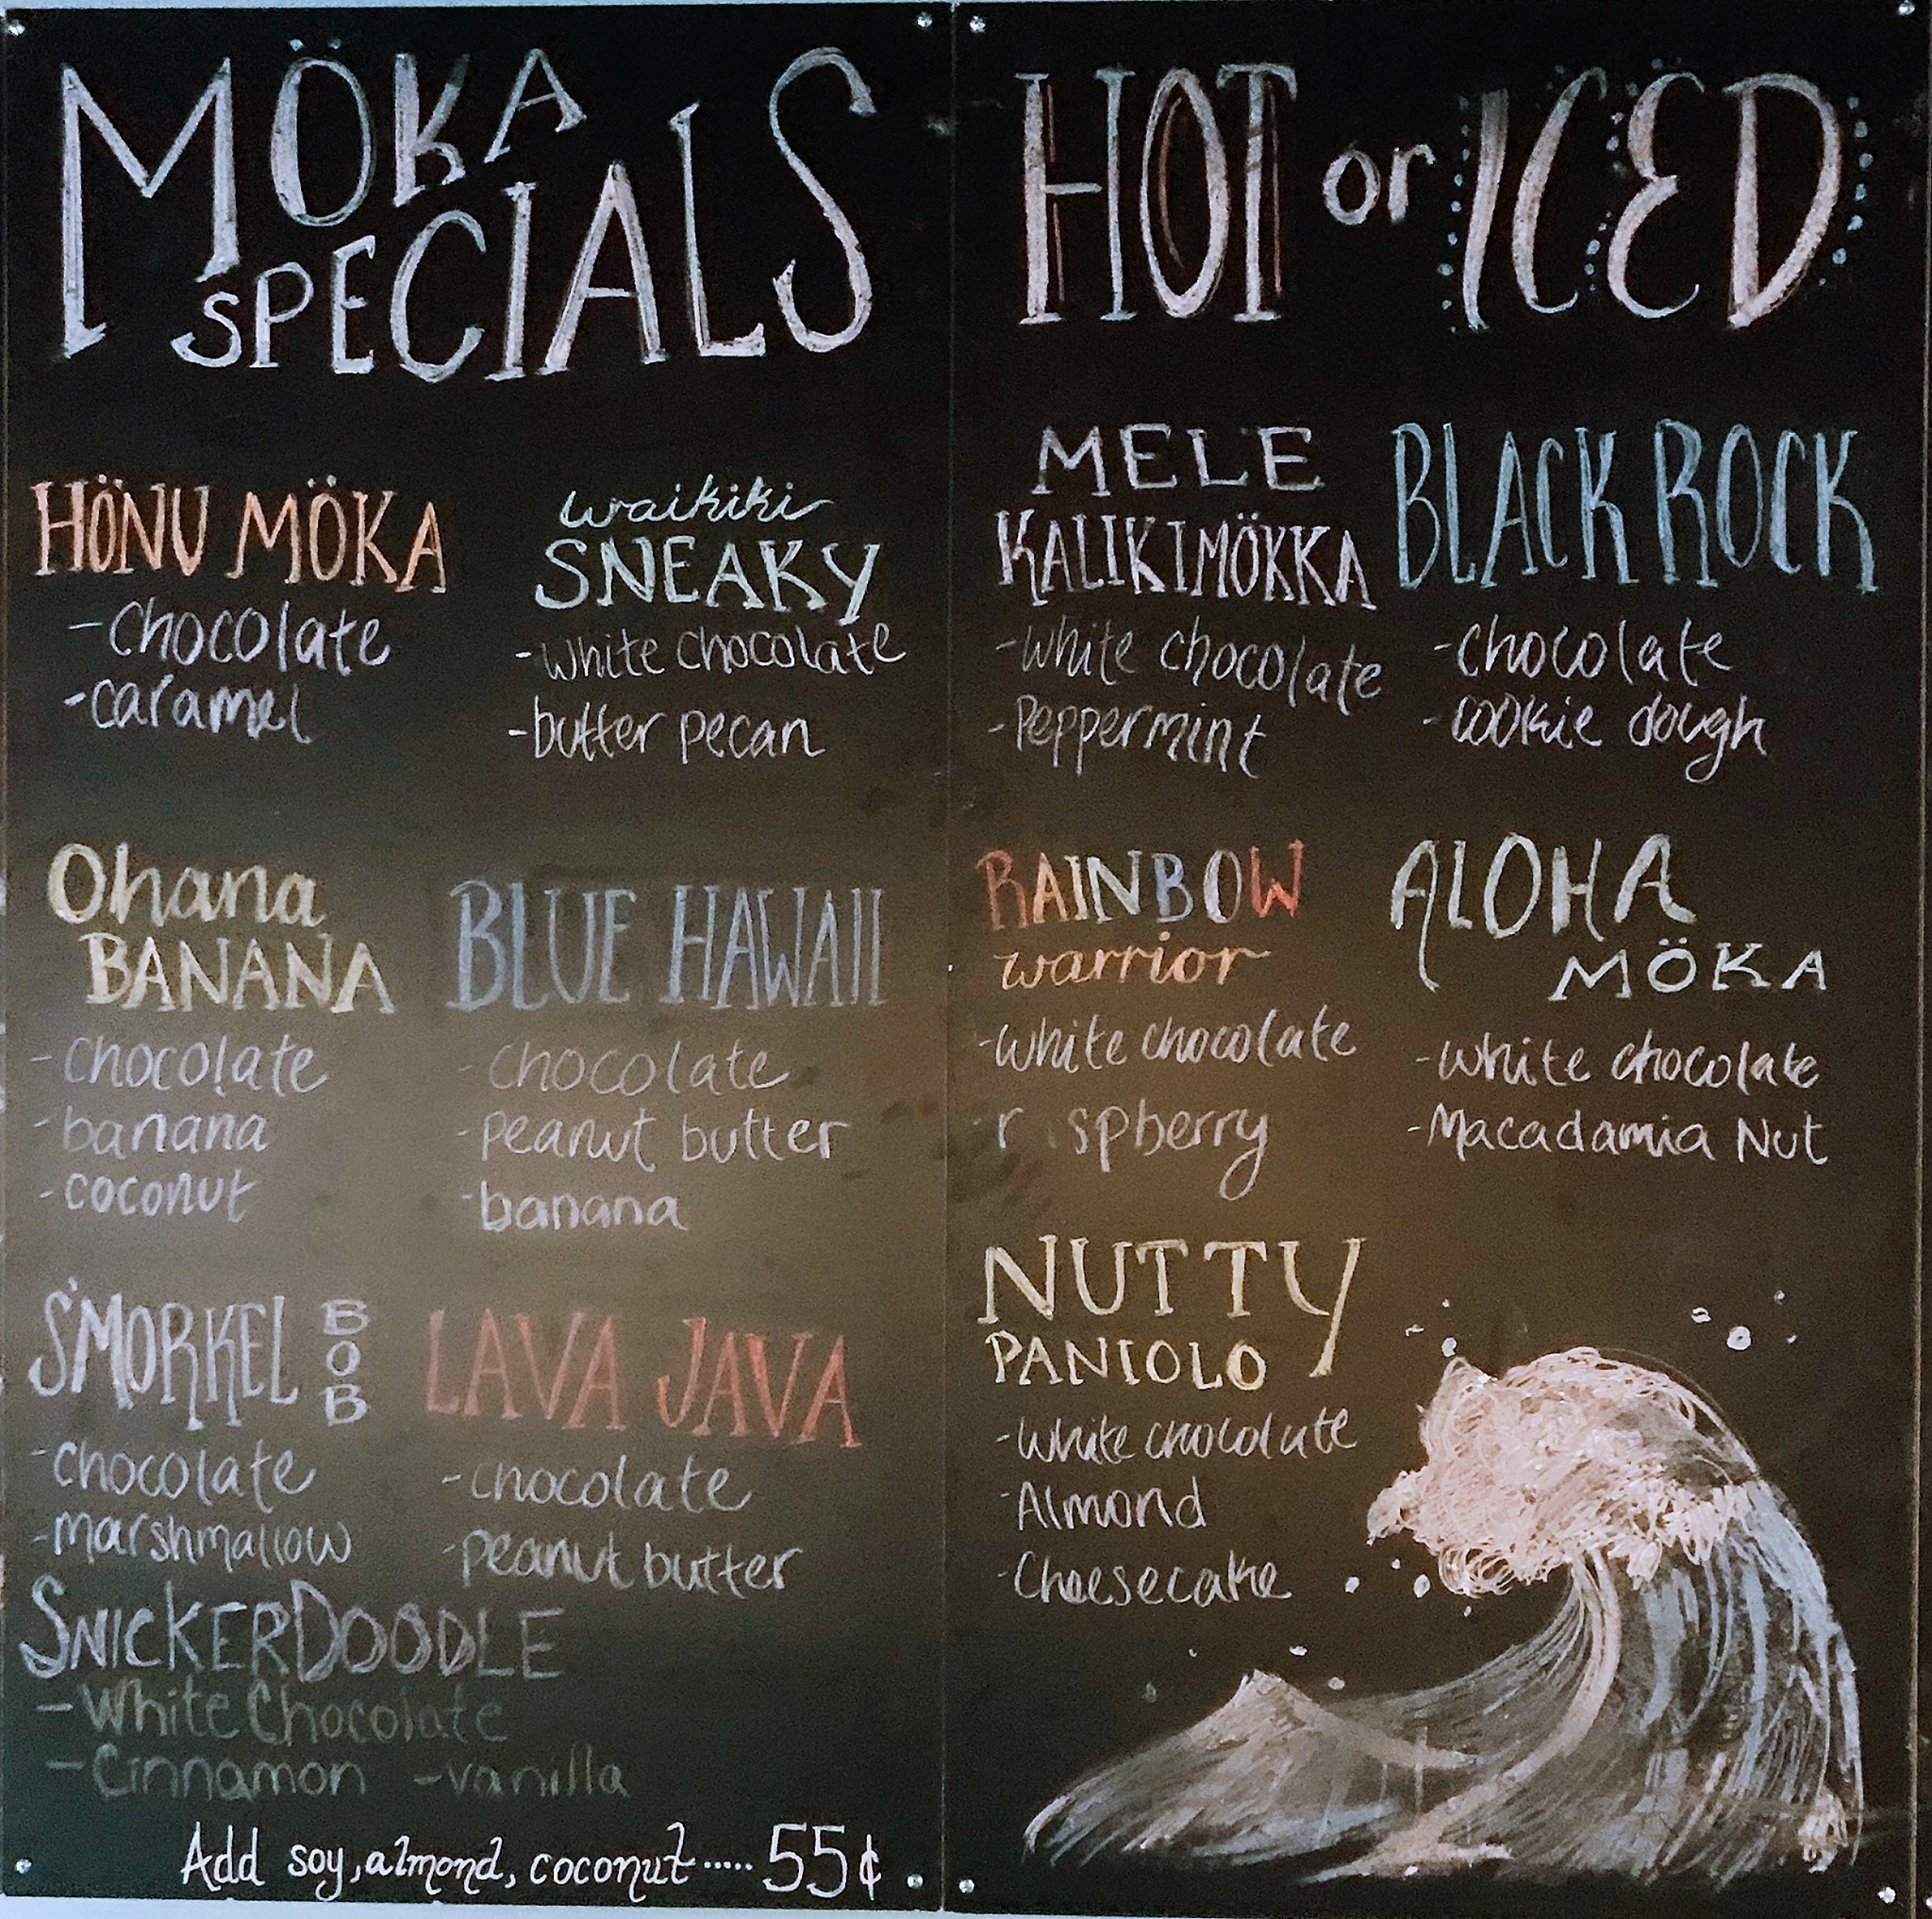 MÖKA
SPECIALS
HÖNU MÖKA
-chocolate
-caramel
waikiki
SNEAKY
-white chocolate
-butter pecan
Ohana
BANANA
-chocolate
-banana
-coconut
BLUE HAWAII
-chocolate
-peanut butter
-banana
S'MORKEL BOB
-chocolate
-marshmallow
LAVA JAVA
-chocolate
-peanut butter
SNICKERDOODLE
-White Chocolate
-Cinnamon -vanilla
Add soy, almond, coconut ..... 55¢
HOT or ICED
MELE
KALIKIMÖKKA
-white chocolate
-Peppermint
BLACK ROCK
-chocolate
-cookie dough
RAINBOW
warrior
-white chocolate
r spberry
ALOHA
MÖKA
-white chocolate
-Macadamia Nut
NUTTY
PANIOLO
-white chocolate
-Almond
-Cheesecake